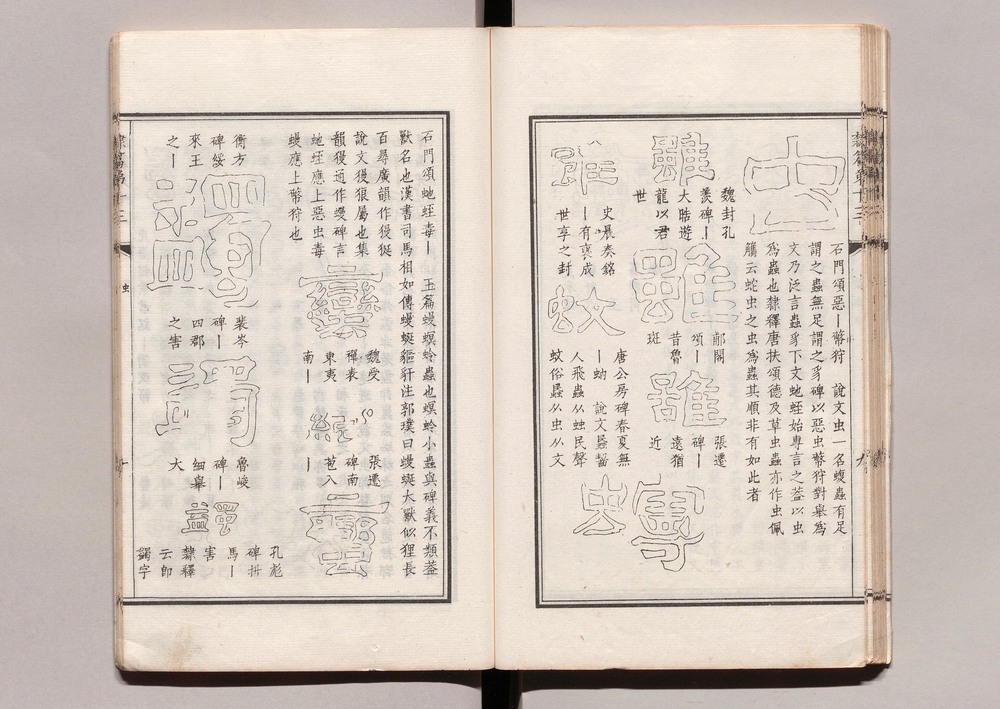 虫
石門頌惡丨幣狩 說文虫一名蝮蟲有足
謂之蟲無足謂之豸碑以惡虫幣狩對舉爲
文乃泛言蟲豸下文虵蛭始專言之葢以虫
爲蟲也隸釋唐扶頌德及草虫蟲亦作虫佩
觿云蛇虫之虫爲蟲其順非有如此者
雖
魏封孔
羨碑丨
大晧遊
龍以君
世
雖
郙閣
頌丨
昔魯
斑
雖
張遷
碑丨
遠猶
近
雖
史晨奏銘
丨有襃成
世享之封
蚊
唐公房碑春夏無
丨蚋 說文蟁齧
人飛蟲从䖵民聲
蚊俗蟁从虫从文
石門頌虵蛭毒丨 玉篇蟃螟蛉蟲也螟蛉小蟲與碑義不類葢
獸名也漢書司馬相如傳蟃蜒貙豻注郭璞曰蟃蜒大獸似狸長
百尋廣韻作獌狿
說文獌狼屬也集
韻獌通作蟃碑言
虵蛭應上惡虫毒
蟃應上幣狩也
蠻
魏受
禪表
東夷
南丨
張遷
碑南
苞八
丨
蠻
衡方
碑綏
來王
之丨
蠲
裴岑
碑丨
四郡
之害
蠲
魯峻
碑丨
細舉
大
蠲
孔彪
碑拼
馬丨
害
隸釋
云卽
蠲字
虫
十
隸篇第十三
九